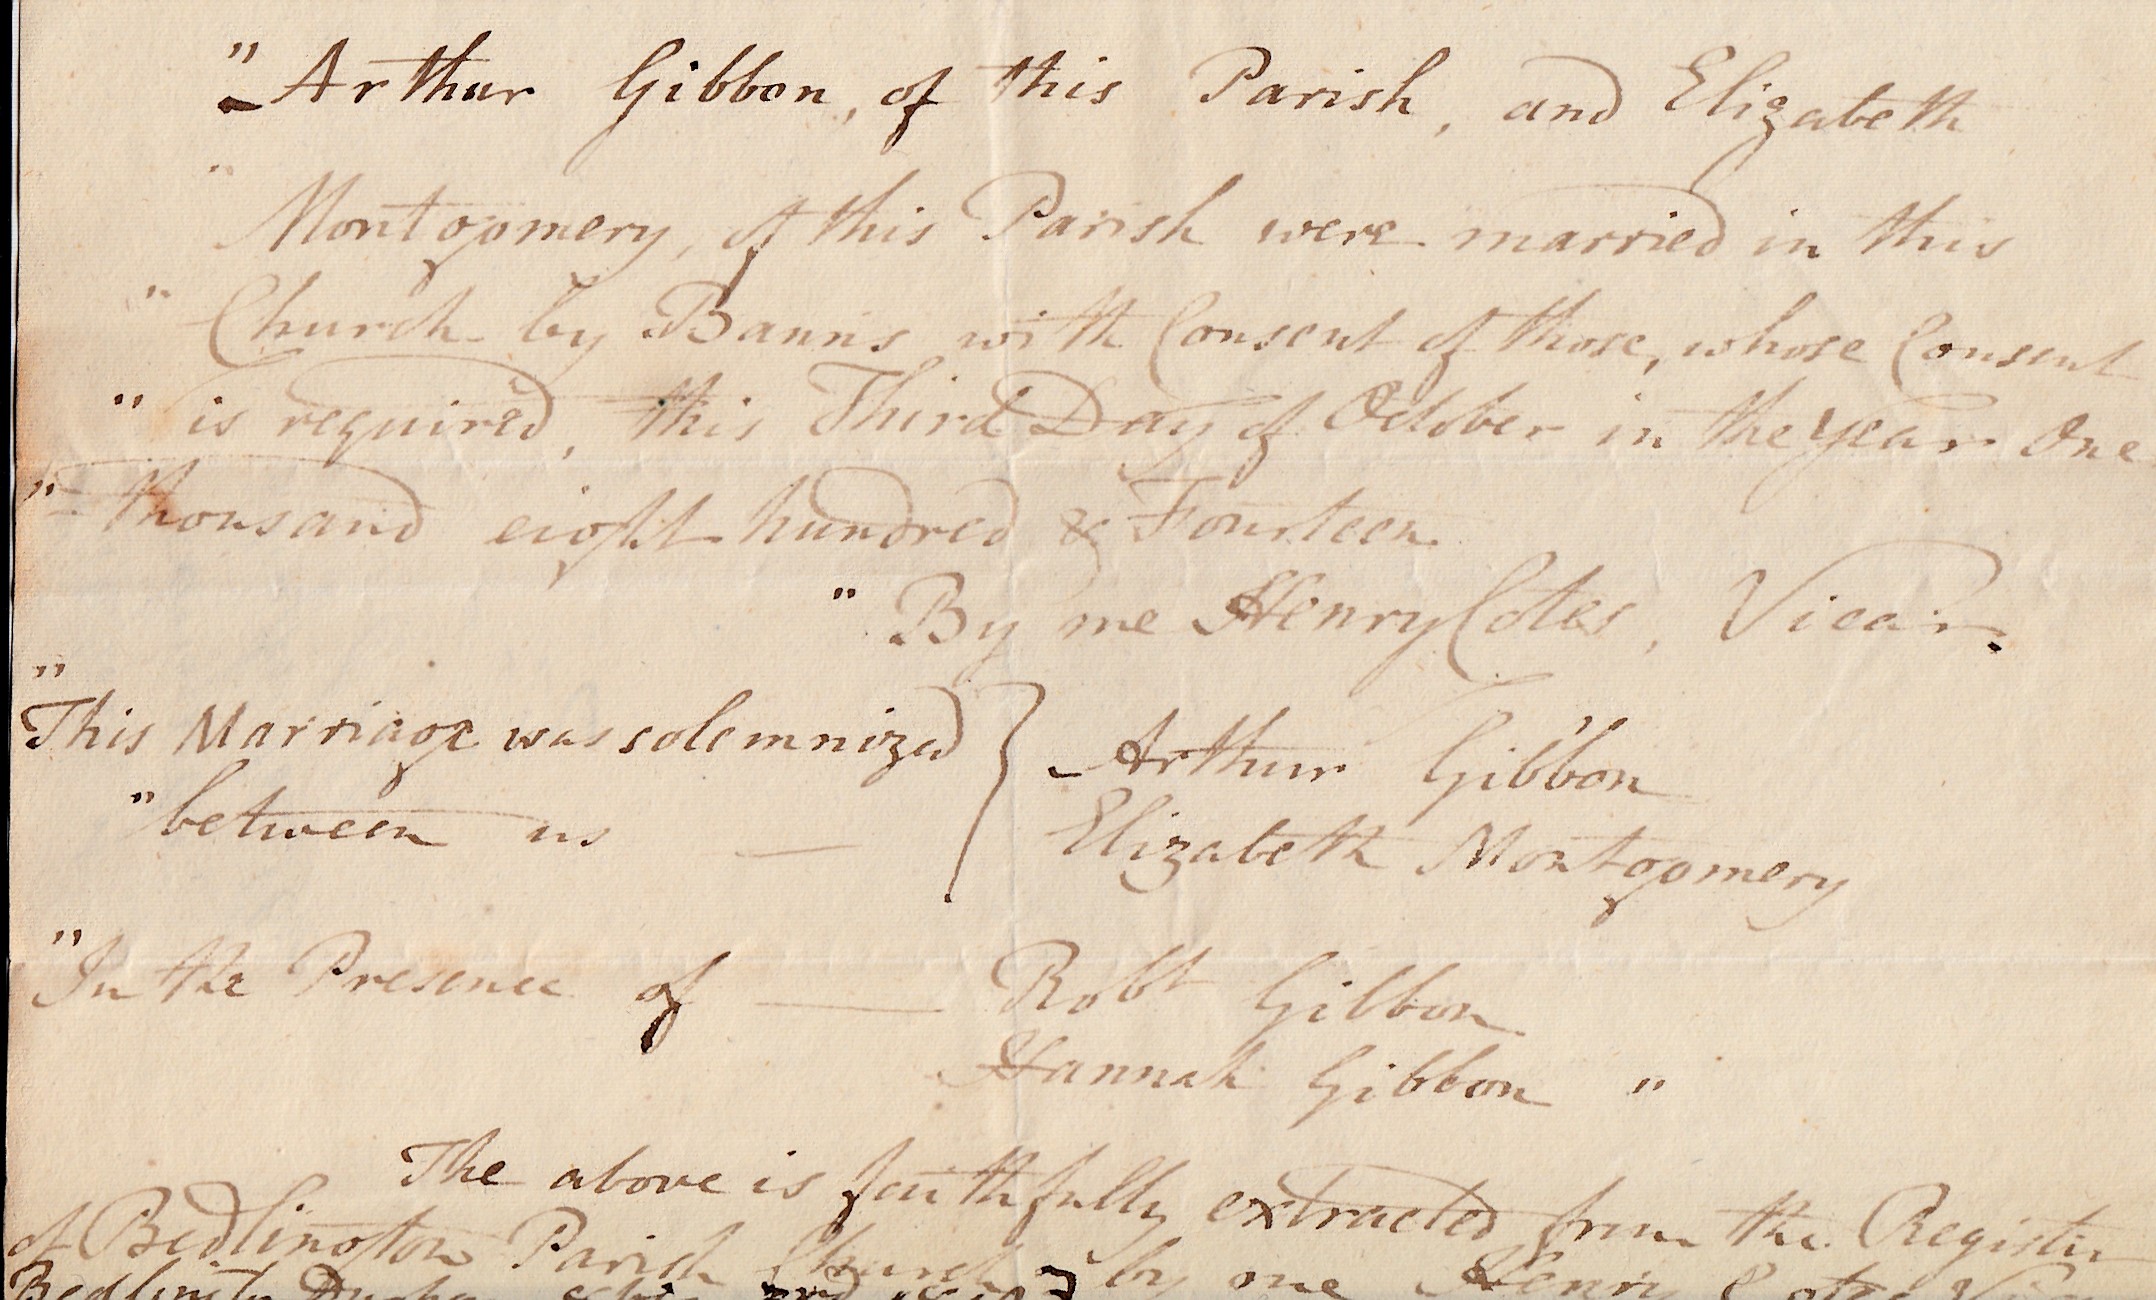 " Arthur Gibbon, of this Parish, and Elizabeth
" Montgomery, of this Parish were married in this
" Church by Banns with Consent of those, whose Consent
" is required, this Third Day of October in the year One
" thousand eight hundred & Fourteen
" By me Henry Cotes, Vicar.
"
This Marriage was solemnized } Arthur Gibbon
" between us — Elizabeth Montgomery
" In the Presence of — Robt Gibbon
Hannah Gibbon "
The above is faithfully extracted from the Register
of Bedlington Parish Church by me Henry Cotes